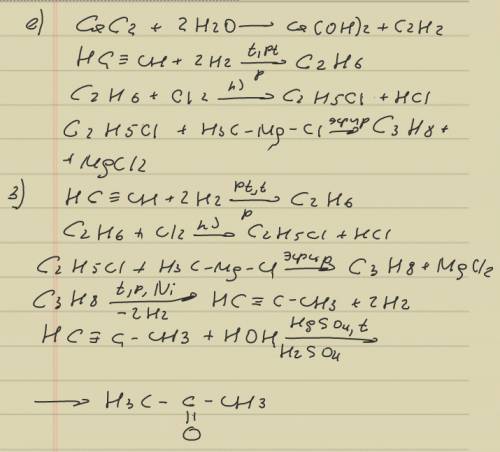 е) CaC2 + 2H2O → Ca(OH)2 + C2H2
HC≡CH + 2H2 t,pt → p C2H6
C2H6 + Cl2 hν → C2H5Cl + HCl
C2H5Cl + H3C-Mg-Cl эфир → C3H8 +
+ MgCl2
з) HC≡CH + 2H2 pt,t → p C2H6
C2H6 + Cl2 hν → C2H5Cl + HCl
C2H5Cl + H3C-Mg-Cl эфир → C3H8 + MgCl2
C3H8 t,p,Ni → -2H2 HC≡C-CH3 + 2H2
HC≡C-CH3 + HOH HgSO4,t → H2SO4
→ H3C-C-CH3
=
O